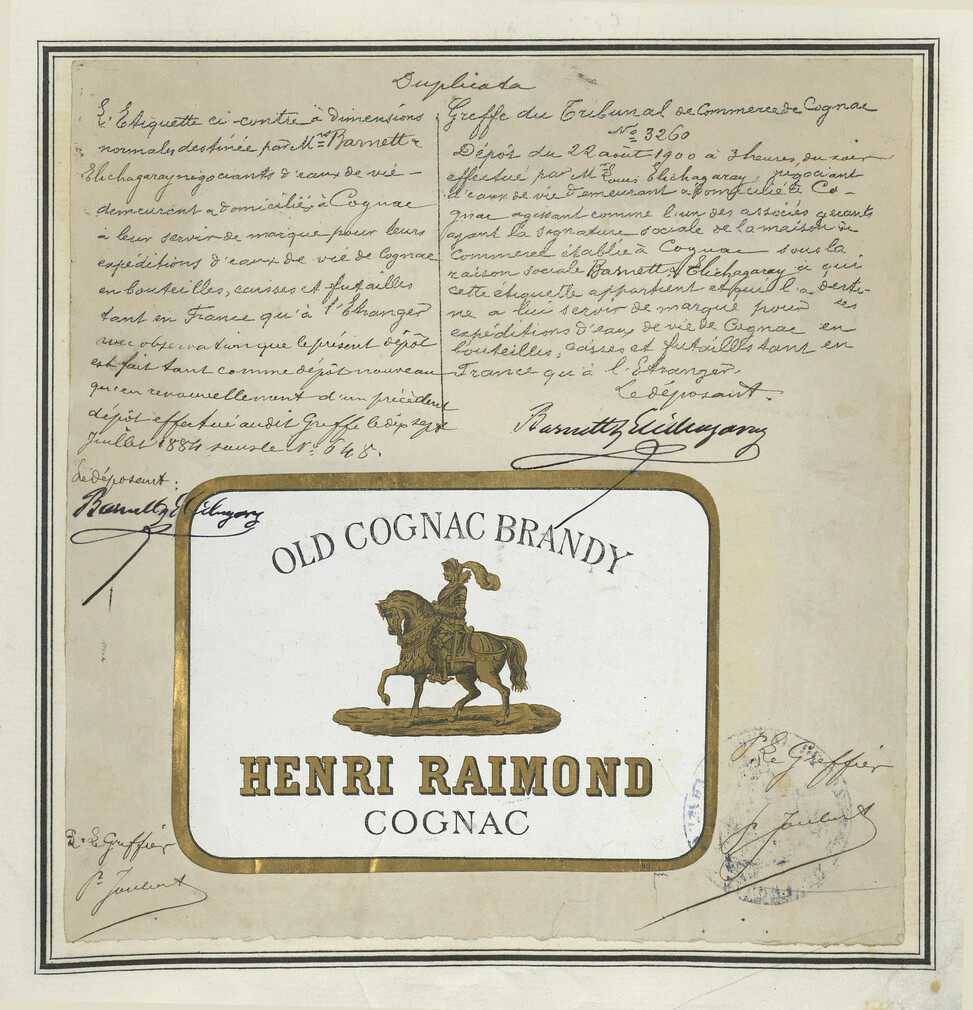 Duplicata
L'Etiquette ci-contre à dimensions
normales destinée par Mrs Barnett &
Elichagaray négociants d'eaux de vie
demeurant & domiciliés à Cognac
à leur servir de marque pour leurs
expéditions d'eaux de vie de Cognac
en bouteilles, caisses et futailles
tant en France qu'à l'Etranger
avec observation que le présent dépôt
est fait tant comme dépôt nouveau
qu'en renouvellement d'un précédent
dépôt effectué audit Greffe le dix sept
Juillet 1884 sous le No 645.
Le déposant:
Barnett & Elichagaray
Greffe du Tribunal de Commerce de Cognac
No 3260
Dépôt du 22 août 1900 à 3 heures, du soir
effectué par Mr Louis Elichagaray, négociant
d'eaux de vie demeurant & domicilié à Co-
gnac agissant comme l'un des associés gérants
ayant la signature sociale de la maison de
Commerce établie à Cognac sous la
raison sociale Barnett & Elichagaray à qui
cette étiquette appartient et qui l'a desti-
né a lui servir de marque pour ses
expéditions d'eaux de vie de Cognac en
bouteilles, caisses et futailles tant en
France qu'à l'Etranger.
Le déposant.
Barnett & Elichagaray
OLD COGNAC BRANDY
HENRI RAIMOND
COGNAC
Pr Le Greffier
P. Le Greffier